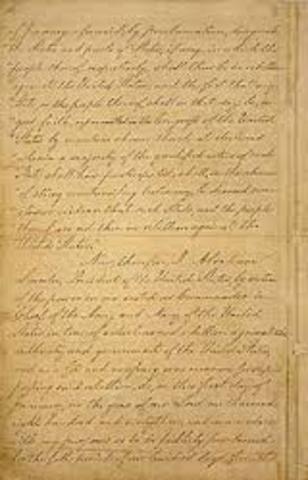 of January aforesaid, by proclamation, designate
the States and parts of States, if any, in which the
people thereof respectively, shall then be in rebellion
against the United States; and the fact that any
State, or the people thereof, shall on that day be, in
good faith, represented in the Congress of the United
States by members chosen thereto at elections
wherein a majority of the qualified voters of such
State shall have participated, shall, in the absence
of strong countervailing testimony, be deemed con-
clusive evidence that such State, and the people
thereof, are not then in rebellion against the
United States."
Now, therefore, I, Abraham
Lincoln, President of the United States, by virtue
of the power in me vested as Commander-in-
Chief of the Army and Navy of the United
States in time of actual armed rebellion against the
authority and government of the United States,
and as a fit and necessary war measure for sup-
pressing said rebellion, do, on this first day of
January, in the year of our Lord one thousand
eight hundred and sixty three, and in accordance
with my purpose so to do publicly proclaimed
for the full period of one hundred days, from the